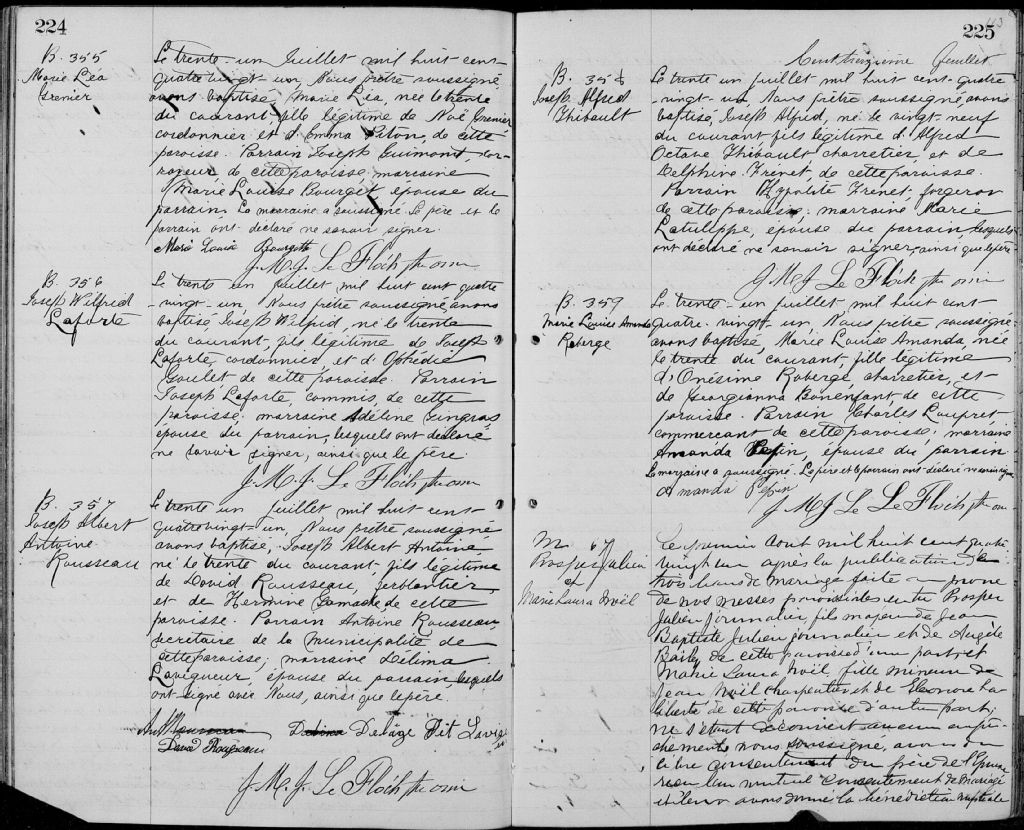 224
B. 355
Marie Léa
Grenier
Le trente-un Juillet mil huit cent-
quatre vingt-un, Nous prêtre soussigné
avons baptisé, Marie Léa, née le trente
du courant, fille légitime de Noé Grenier
cordonnier et d'Emma Piton, de cette
paroisse. Parrain Joseph Guimont, cor-
royeur de cette paroisse, marraine
Marie Louise Bourget épouse du
parrain. La marraine a soussigné. Le père et le
parrain ont déclaré ne savoir signer.
Marie Louise Bourgette
J. M. J. Le Flóch ptre omi
B. 356
Joseph Wilfrid
Laforte
Le trente un juillet mil huit cent quatre
-vingt-un Nous prêtre soussigné avons
baptisé Joseph Wilfrid, né le trente
du courant, fils légitime de Joseph
Laforte cordonnier, et d'Ophédie
Goulet de cette paroisse. Parrain
Joseph Laforte, commis, de cette
paroisse. marraine Adéline Gingras
épouse du parrain, lesquels ont déclaré
ne savoir signer, ainsi que le père.
J. M. J. Le Flóch ptre omi
B. 357
Joseph Albert
Antoine
Rousseau
Le trente un Juillet mil huit cent-
quatrevingt-un, Nous prêtre soussigné
avons baptisé, Joseph Albert Antoine,
né le trente du courant, fils légitime
de David Rousseau, ferblantier,
et de Hermine Gamache, de cette
paroisse. Parrain Antoine Rousseau,
secrétaire de la Municipalité de
cette paroisse, marraine Délima
Lavigueur, épouse du parrain, lesquels
ont signé avec Nous, ainsi que le père.
Delage Dit Lavig
David Rousseau
J. M. J. Le Flóch ptre omi
113
225
Cent treizième feuillet
B. 358
Joseph Alfred
Thibault
Le trente un juillet mil huit cent-quatre
-vingt-un, Nous prêtre soussigné, avons
baptisé, Joseph Alfred, né le vingt neuf
du courant fils légitime d'Alfred
Octave Thibault charretier, et de
Delphine Frenet, de cette paroisse.
Parrain Hypolite Frenet, forgeron
de cette paroisse; marraine Marie
Latulippe, épouse du parrain, lesquels
ont déclaré ne savoir signer, ainsi que le père
J M J Le Flóch ptre omi
B. 359
Marie Louise Amanda
Roberge
Le trente-un juillet mil huit cent
quatre-vingt-un, Nous prêtre soussigné
avons baptisé Marie Louise Amanda, née
le trente du courant, fille légitime
d'Onésime Roberge, charretier, et
de Georgianna Bonenfant, de cette
paroisse. Parrain Charles Loupret
commercant de cette paroisse; marraine
Amanda Pepin, épouse du parrain.
La marraine a soussigné. Le père et le parrain ont déclaré ne savoir signer
Amanda Pepin
J M J Le Le Flóch ptre omi
M 67
Prosper Julien
et
Marie Laura Noël
Le premier Aout mil huit cent quatre
vingt un après la publication de
trois bans de mariage faite au prone
de nos messes paroissiales entre Prosper
Julien journalier fils majeur de Jean
Baptiste Julien journalier et de Angèle
Bailey de cette paroisse d'une part, et
Marie Laura Noël, fille mineure de
Jean Noël charpentier et de Eleonore La-
liberté de cette paroisse d'autre part,
ne s'étant découvert aucun empê-
chement nous soussigné, avons du
libre consentement du père de l'épouse
reçu leur mutuel consentement de mariage
et leur avons donné la bénédiction nuptiale